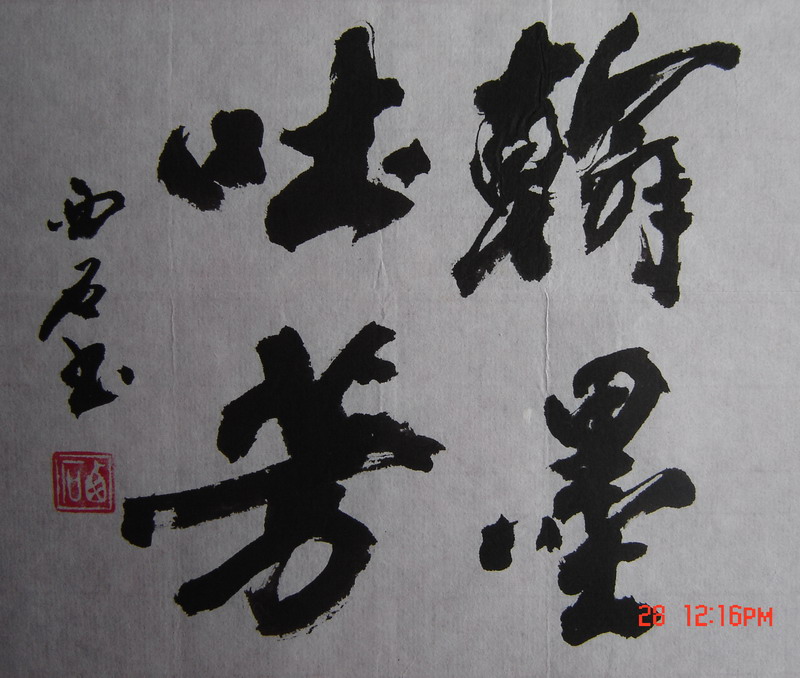 翰墨
吐芳
西石书
28 12:16PM